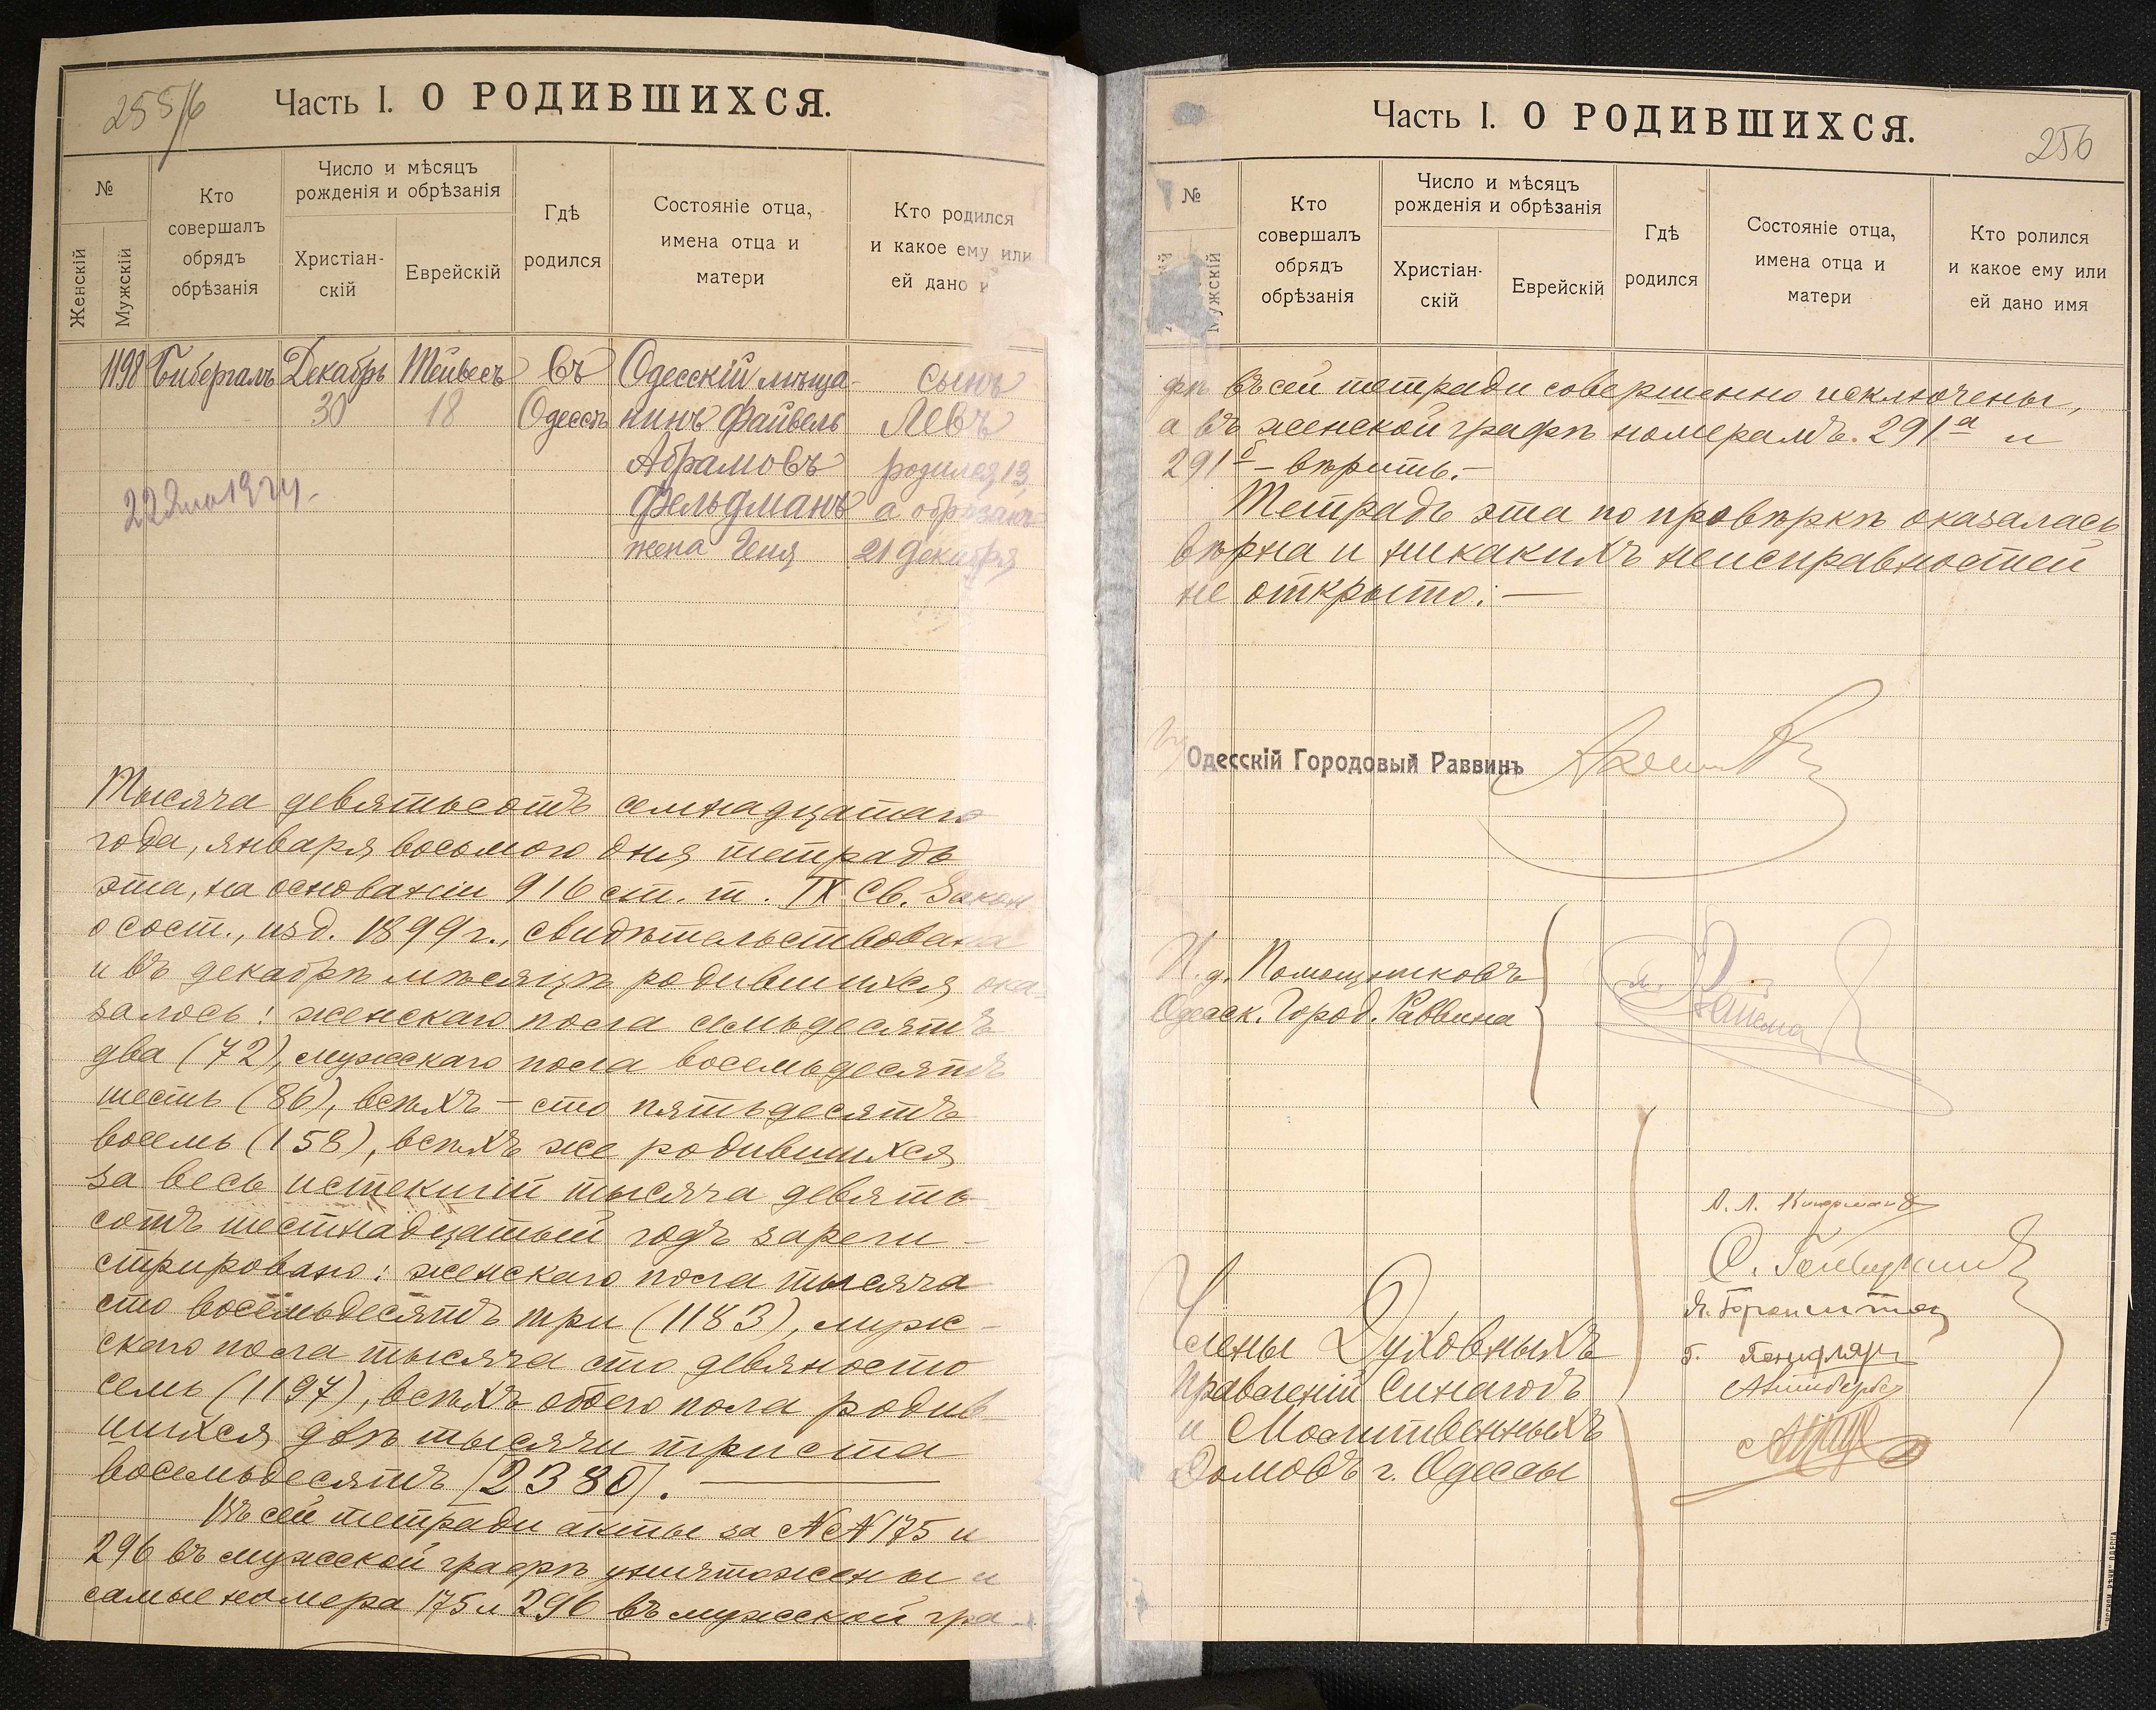 255/6
Часть I. О РОДИВШИХСЯ.
№
Женскій
Мужскій
Кто совершалъ обрядъ обрѣзанія
Число и мѣсяцъ рожденія и обрѣзанія
Христіан-скій
Еврейскій
Гдѣ родился
Состояніе отца, имена отца и матери
Кто родился и какое ему или ей дано
1198 Бибергалъ Декабрь Тейвесъ Въ Одесскій мѣща- сынъ
30 18 Одессѣ нинъ Файвель Левъ
Абрамовъ родился 13,
Фельдманъ а обрѣзанъ
жена Геня 21 декабря
Тысяча девятьсотъ семнадцатаго
года, января восьмого дня тетрадь
эта, на основаніи 916 ст. т. IX Св. Закон
о сост., изд. 1899 г., свидѣтельствована
и въ декабрѣ мѣсяцѣ родившихся ока-
залось: женскаго пола семьдесятъ
два (72), мужскаго пола восемьдесятъ
шесть (86), всѣхъ – сто пятьдесятъ
восемь (158), всѣхъ же родившихся
за весь истекшій тысяча девять-
сотъ шестнадцатый годъ зареги-
стрировано: женскаго пола тысяча
сто восемьдесятъ три (1183), муж-
скаго пола тысяча сто девяносто
семь (1197), всѣхъ обоего пола родив-
шихся двѣ тысячи триста
восемьдесятъ [2380]. —
Въ сей тетради акты за №№ 175 и
296 въ мужской графѣ уничтожены и
самые номера 175 и 296 въ мужской гра-
Часть I. О РОДИВШИХСЯ.
256
№
Мужскій
Кто совершалъ обрядъ обрѣзанія
Число и мѣсяцъ рожденія и обрѣзанія
Христіан-скій
Еврейскій
Гдѣ родился
Состояніе отца, имена отца и матери
Кто ролился и какое ему или ей дано имя
фѣ въ сей тетради совершенно исключены,
а въ женской графѣ номерамъ 291а и
291б – вѣрить. –
Тетрадь эта по провѣркѣ оказалась
вѣрна и никакихъ неисправностей
не открыто: —
Одесскій Городовый Раввинъ
И. д. Помощниковъ
Одесск. Город. Раввина
Члены Духовныхъ
Правленій Синагогъ
и Молитвенныхъ
Домовъ г. Одессы